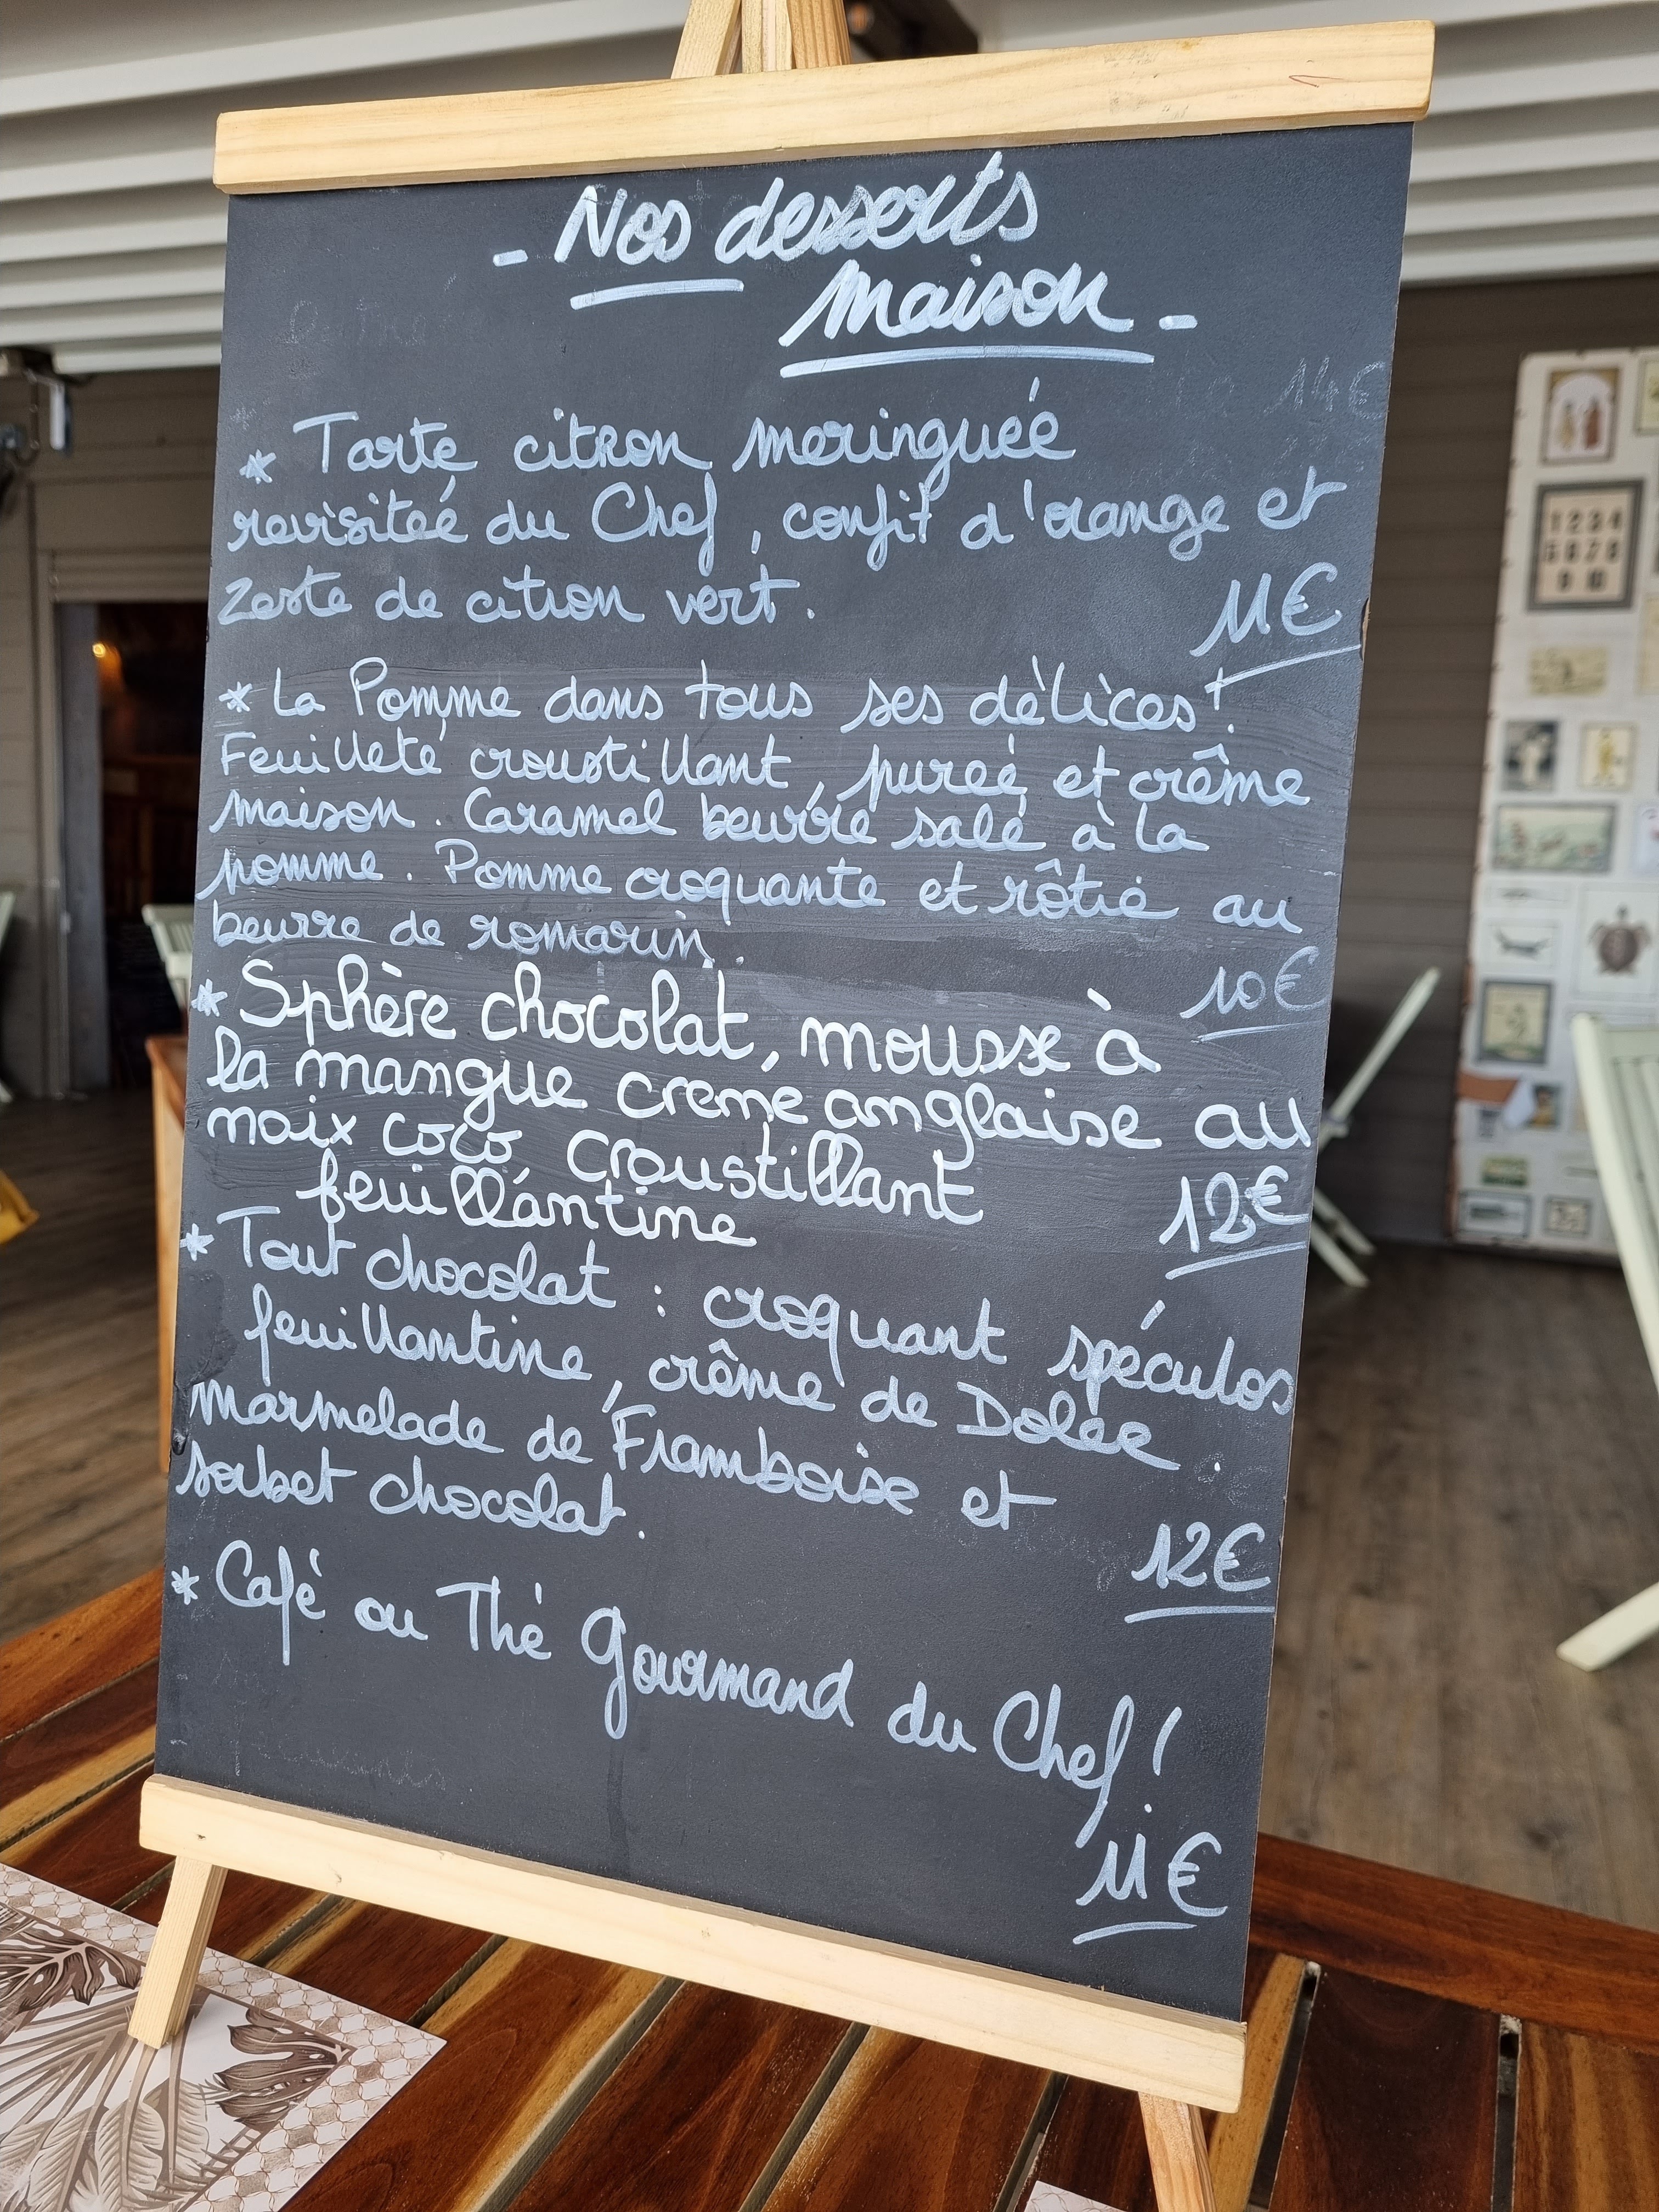 - Nos desserts
maison -
* Tarte citron meringuée
revisitée du Chef, confit d'orange et
Zeste de citron vert.
11€
* La Pomme dans tous ses délices !
Feuilleté croustillant, purée et crême
maison. Caramel beurre salé à la
pomme. Pomme croquante et rôtie au
beurre de romarin.
10€
* Sphère chocolat, mousse à
la mangue creme anglaise au
noix coco, croustillant
feuillantine
12€
* Tout chocolat : croquant spéculos
feuillantine, crême de Dolce.
marmelade de Framboise et
sorbet chocolat.
12€
* Café ou Thé Gourmand du Chef !
11€
14€
1 2 3 4
5 6 7 8
9 10